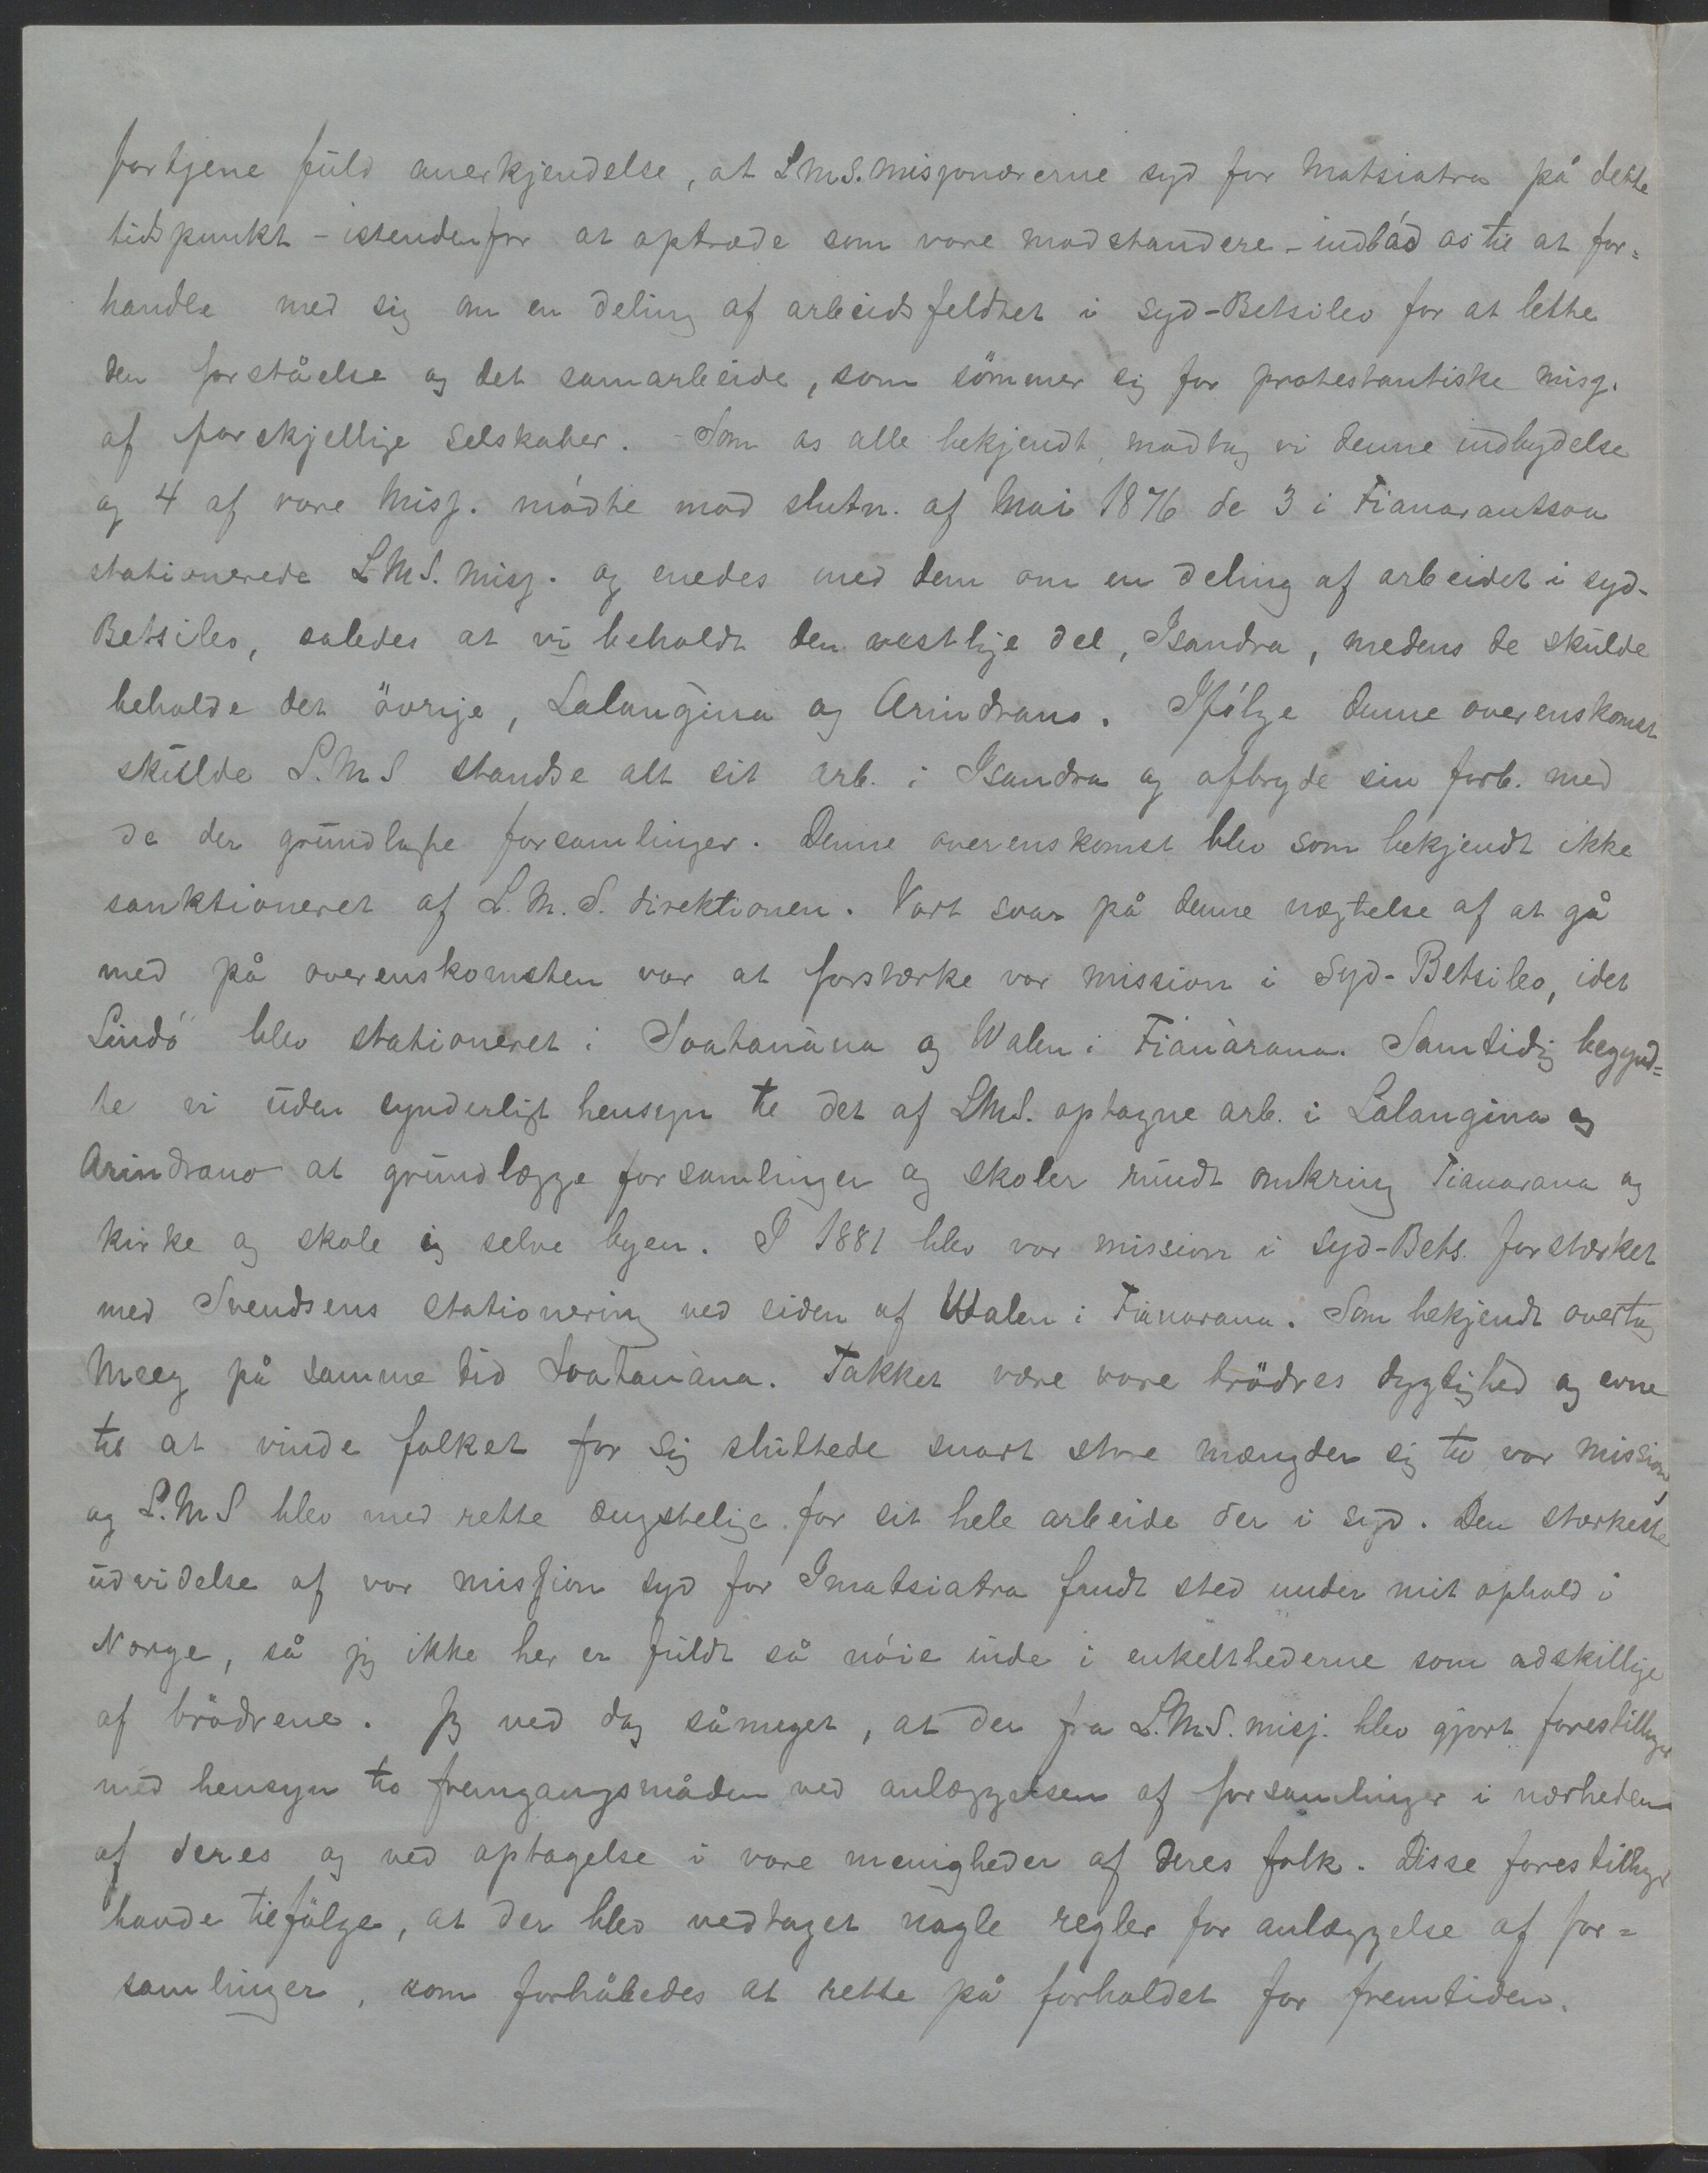 fortjene fuld anerkjendelse, at L.M.S. misjonærerne syd for Matsiatra på dette
tidspunkt – istendenfor at optræde som vore modstandere – indbád os til at for=
handle med sig om en deling af arbeidsfeldtet i Syd-Betsileo for at lette
den forståelse og det samarbeide, som sömmer sig for protestantiske misj.
af forskjellige selskaber. – Som os alle bekjendt, modtog vi denne indbydelse
og 4 af vore Misj. mødte mod slutn. af Mai 1876 de 3 i Fianarantsoa
stationerede L.M.S. Misj. og enedes med dem om en deling af arbeidet i syd-
Betsileo, saledes at vi beholdt den vestlige del, Isandra, medens de skulde
beholde det övrige, Lalangina og Arindrano. Ifölge denne overenskomst
skulde L.M.S standse alt sit arb. i Isandra og afbryde sin forb. med
de der grundlagte forsamlinger. Denne overenskomst blev som bekjendt ikke
sanktioneret af L.M.S. direktionen. Vort svar på denne nægtelse af at gå
med på overenskomsten var at forstærke vor mission i Syd-Betsileo, idet
Lindö blev stationeret i Soatanàna og Walen i Fianàrana. Samtidig begynd=
te vi uden synderligt hensyn til det af LMS. optagne arb. i Lalangina og
Arindrano at grundlægge forsamlinger og skoler rundt omkring Fianarana og
kirke og skole i selve byen. I 1881 blev vor mission i Syd-Bets. forstærket
med Svendsens stationering ved siden af Walen i Fianarana. Som bekjendt overtog
Meeg på samme tid Soatanàna. Takket være vore brödres dygtighed og evne
til at vinde folket for sig sluttede snart store mængder sig til vor mission,
og L.M.S blev med rette ængstelige for sit hele arbeide der i syd. Den stærkeste
udvidelse af vor mission syd for Imatsiatra fandt sted under mit ophold i
Norge, så jeg ikke her er fuldt så nöie inde i enkelthederne som adskillige
af brödrene. Jeg ved dog såmeget, at der fra L.M.S. misj. blev gjort forestillinger
med hensyn til fremgangsmåden ved anlæggelsen af forsamlinger i nærheden
af deres og ved optagelse i vore menigheder af deres folk. Disse forestillinger
havde tilfölge, at der blev vedtaget nogle regler for anlæggelse af for=
samlinger, som forhåbedes at rette på forholdet for fremtiden.